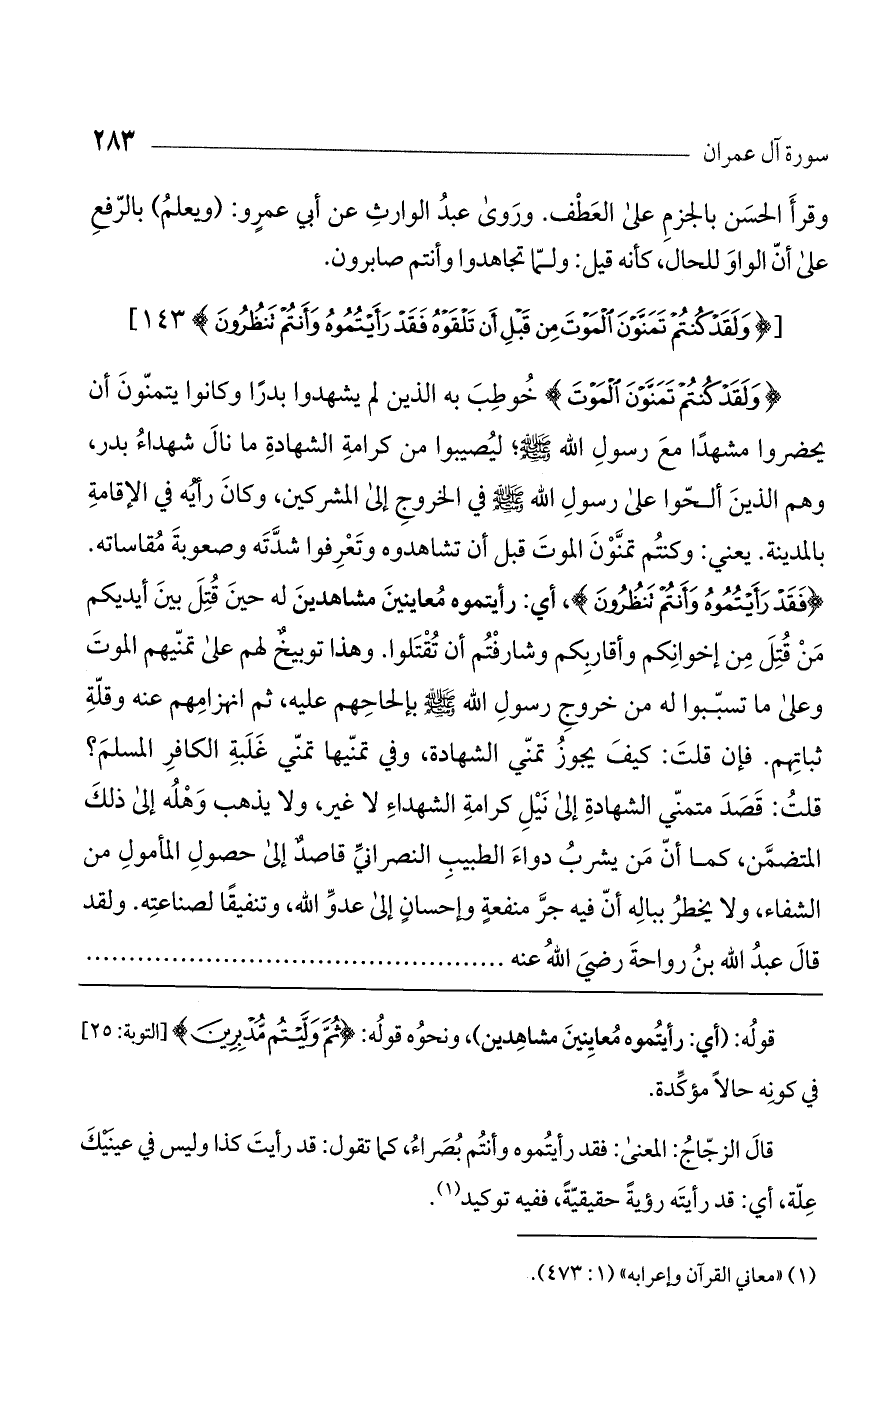 سورة آل عمران ٢٨٣
وقرأَ الحسَن بالجزمِ علىٰ العَطْف. ورَوىٰ عبدُ الوارثِ عن أبي عمرٍو: (ويعلمُ) بالرّفعِ
علىٰ أنّ الواوَ للحال، كأنه قيل: ولـمّا تجاهدوا وأنتم صابرون.
[﴿وَلَقَدْ كُنتُمْ تَمَنَّوْنَ ٱلْمَوْتَ مِن قَبْلِ أَن تَلْقَوْهُ فَقَدْ رَأَيْتُمُوهُ وَأَنتُمْ تَنظُرُونَ﴾ ١٤٣]
﴿وَلَقَدْ كُنتُمْ تَمَنَّوْنَ ٱلْمَوْتَ﴾ خُوطِبَ به الذين لم يشهدوا بدرًا وكانوا يتمنّونَ أن
يحضروا مشهدًا معَ رسولِ الله ﷺ؛ ليُصيبوا من كرامةِ الشهادةِ ما نالَ شهداءُ بدر،
وهم الذينَ ألـحّوا علىٰ رسولِ الله ﷺ في الخروجِ إلىٰ المشركين، وكانَ رأيُه في الإقامةِ
بالمدينة. يعني: وكنتُم تمنَّوْنَ الموتَ قبل أن تشاهدوه وتَعْرِفوا شدَّتَه وصعوبةَ مُقاساته.
﴿فَقَدْ رَأَيْتُمُوهُ وَأَنتُمْ تَنظُرُونَ﴾، أي: رأيتموه مُعاينينَ مشاهدينَ له حينَ قُتِلَ بينَ أيديكم
مَنْ قُتِلَ مِن إخوانِكم وأقاربِكم وشارفْتُم أن تُقْتَلوا. وهذا توبيخٌ لهم علىٰ تمنّيهم الموتَ
وعلىٰ ما تسبّـبوا له من خروجِ رسولِ الله ﷺ بإلحاحِهم عليه، ثم انهزامِهم عنه وقلّةِ
ثباتِهم. فإن قلتَ: كيفَ يجوزُ تمنّي الشهادة، وفي تمنّيها تمنّي غَلَبةِ الكافرِ المسلمَ؟
قلتُ: قَصَدَ متمنّي الشهادةِ إلىٰ نَيْلِ كرامةِ الشهداءِ لا غير، ولا يذهب وَهْلُه إلىٰ ذلكَ
المتضمَّن، كمـا أنّ مَن يشربُ دواءَ الطبيبِ النصرانيِّ قاصدٌ إلىٰ حصولِ المأمولِ من
الشفاء، ولا يخطرُ ببالِه أنّ فيه جرَّ منفعةٍ وإحسانٍ إلىٰ عدوِّ الله، وتنفيقًا لصناعتِه. ولقد
قالَ عبدُ الله بنُ رواحةَ رضيَ اللهُ عنه ................................................
قولُه: (أي: رأيتُموه مُعاينينَ مشاهِدين)، ونحوُه قولُه: ﴿ثُمَّ وَلَّيْتُم مُّدْبِرِينَ﴾ [التوبة: ٢٥]
في كونِه حالاً مؤكِّدة.
قالَ الزجّاجُ: المعنىٰ: فقد رأيتُموه وأنتُم بُصَراءُ، كما تقول: قد رأيتَ كذا وليس في عينَيْكَ
عِلّة، أي: قد رأيتَه رؤيةً حقيقيّةً، ففيه توكيد(١).
(١) «معاني القرآن وإعرابه» (١: ٤٧٣).